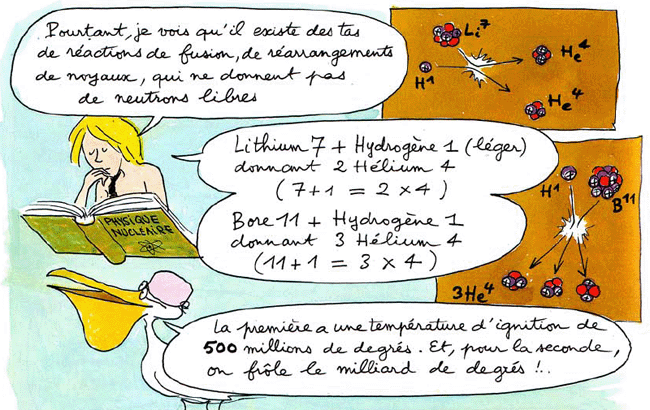 Pourtant, je vois qu'il existe des tas
de réactions de fusion, de réarrangements
de noyaux, qui ne donnent pas
de neutrons libres
Li7
H1
He4
He4
PHYSIQUE
NUCLEAIRE
Lithium 7 + Hydrogène 1 (léger)
donnant 2 Hélium 4
(7+1 = 2 x 4)
Bore 11 + Hydrogène 1
donnant 3 Hélium 4
(11+1 = 3 x 4)
H1
B11
3He4
La première a une température d'ignition de
500 millions de degrés. Et, pour la seconde,
on frôle le milliard de degrés !..